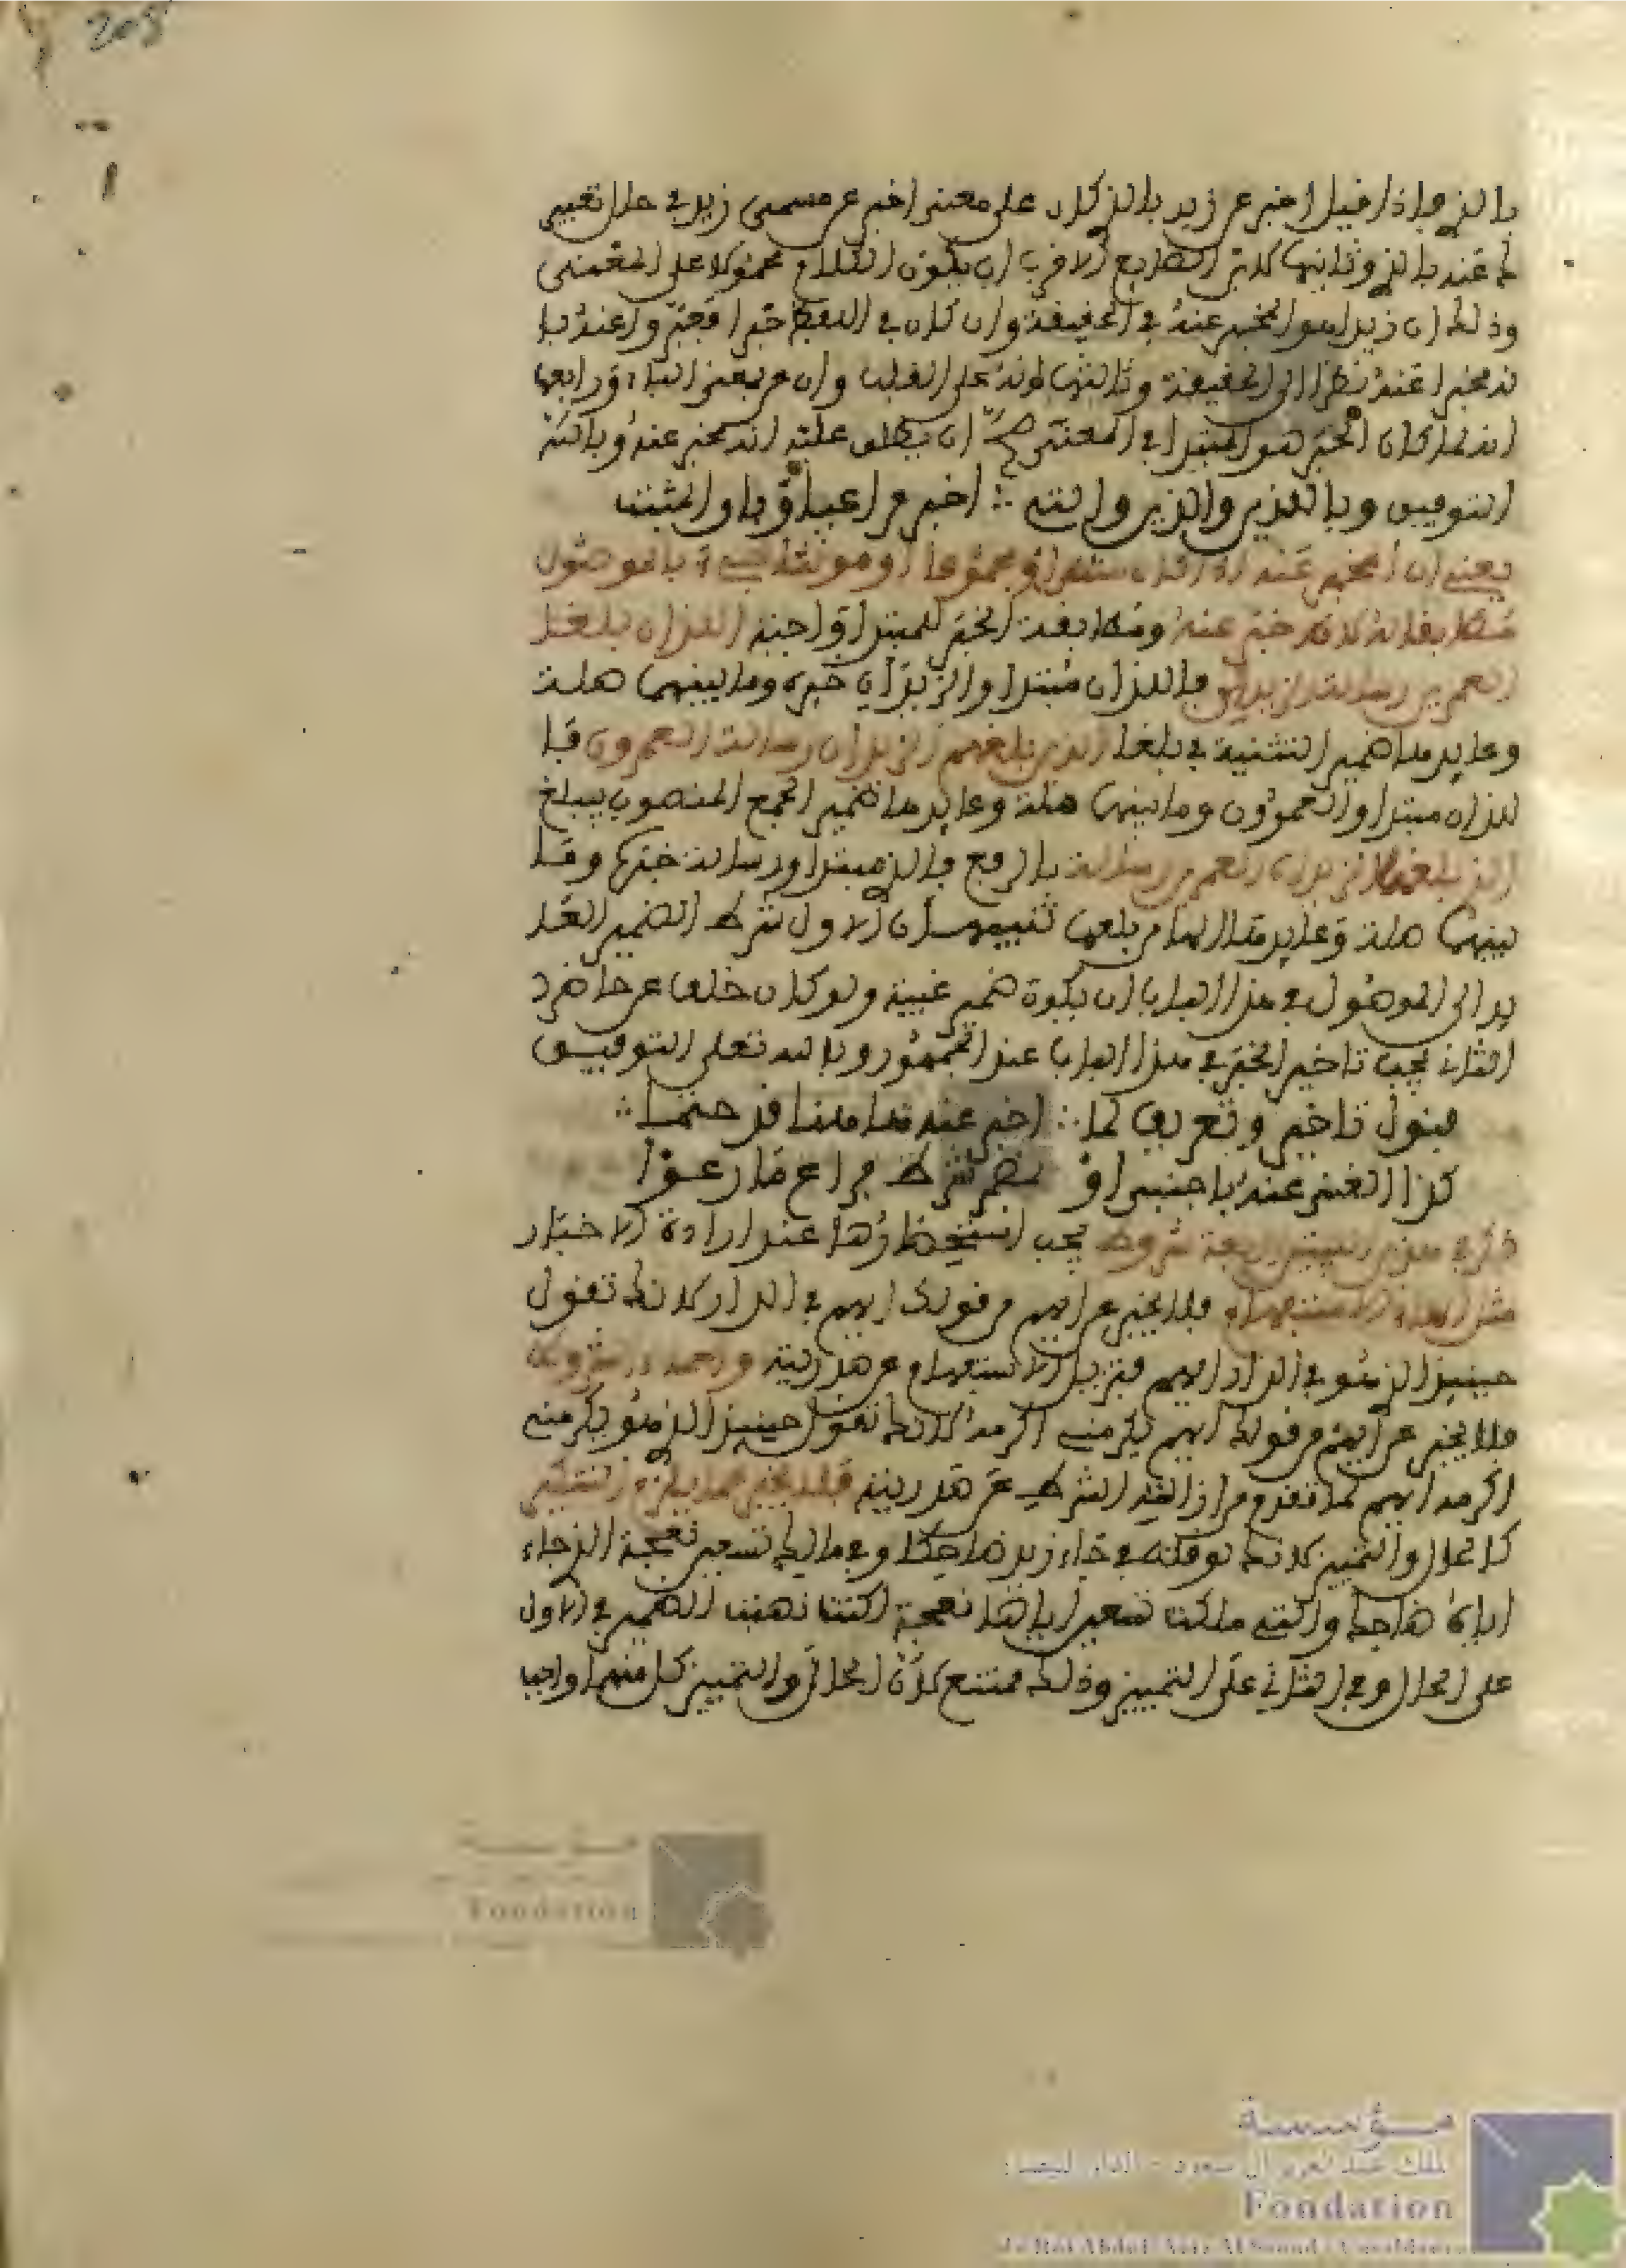 208
بالذي فإذا قيل أخبر عن زيد بالذي كان على معنى أخبر عن مسمى زيد في حال تعبير
ك عنه بالذي وثانيها كابن الضايع الاقرب ان يكون الكلام محمولا على المعنى
وذلك ان زيدا هو المخبر عنه في الحقيقة وان كان في اللفظ خبرا فتجوز واعنه با
نه مخبرا عنه نظرا الى الحقيقة وثالثها انه على القلب وان عن بمعنى الباء ورابعها
انه لما كان الخبر هو المبتدا في المعنى صح ان يطلق عليه انه مخبر عنه وبالله
التوفيق وباللذين والذين والتي ∴ اخبر مراعيا وفاق المثبت
يعني ان المخبر عنه اذا كان مثنى او مجموعا او مونثا جيء بالموصول
مطابقا له لانه خبر عنه ومطابقة الخبر للمبتدا واجبة اللذان بلغا
العمرين رسالة الزيدان فاللذان مبتدا والزيدان خبره وما بينهما صلة
وعايدها ضمير التثنية في بلغا الذين بلغهم الزيدان رسالة العمرون فا
لذين مبتدا والعمرون وما بينهما صلة وعايدها ضمير الجمع المنصوب ببلغ
التي بلغها الزيدان العمرين رسالة بالرفع فالتي مبتدا ورسالة خبرها وما
بينهما صلة وعايدها الهاء من بلغها تنبيهان الاول شرط الضمير العا
يد الى الموصول في هذا الباب ان يكون ضمير غيبة ولو كان خلفا عن حاضر
الثاني يجب تاخير الخبر في هذا الباب عند الجمهور وبالله تعلى التوفيق
قبول تاخير وتعريف لما ∴ اخبر عنه هاهنا قد حتما ∴
كذا الغنى عنه باجنبي او بمضمر شرط فراع ما رعوا
ذكر في هذين البيتين اربعة شروط يجب استحضارها عند ارادة الاخبار
مثل اسماء الاستفهام فلا يخبر عن ايهم من قولك ايهم في الدار لانك تقول
حينيذ الذي هو في الدار ايهم فتزيل الاستفهام عن صدريته واسماء الشروط
فلا يخبر عن ايهم من قولك ايهم يكرمني اكرمه لانك تقول حينيذ الذي هو يكرمني
اكرمه ايهم كما تقدم من ازالة الشرط عن صدريته فلا يخبر عما يلزم التنكير
كالحال والتمييز لانك لو قلته في جاء زيد ضاحكا وفي مالك تسعين نعجة الذي جاء
اياه ضاحك والتي ملكت تسعين اياها نعجة لكنت نصبت الضمير في الاول
على الحال وفي الثاني على التمييز وذلك ممتنع لان الحال والتمييز كل منهما واجب
مؤسسة
الملك عبد العزيز آل سعود - الدار البيضاء
Fondation
du Roi Abdul-Aziz Al Saoud - Casablanca